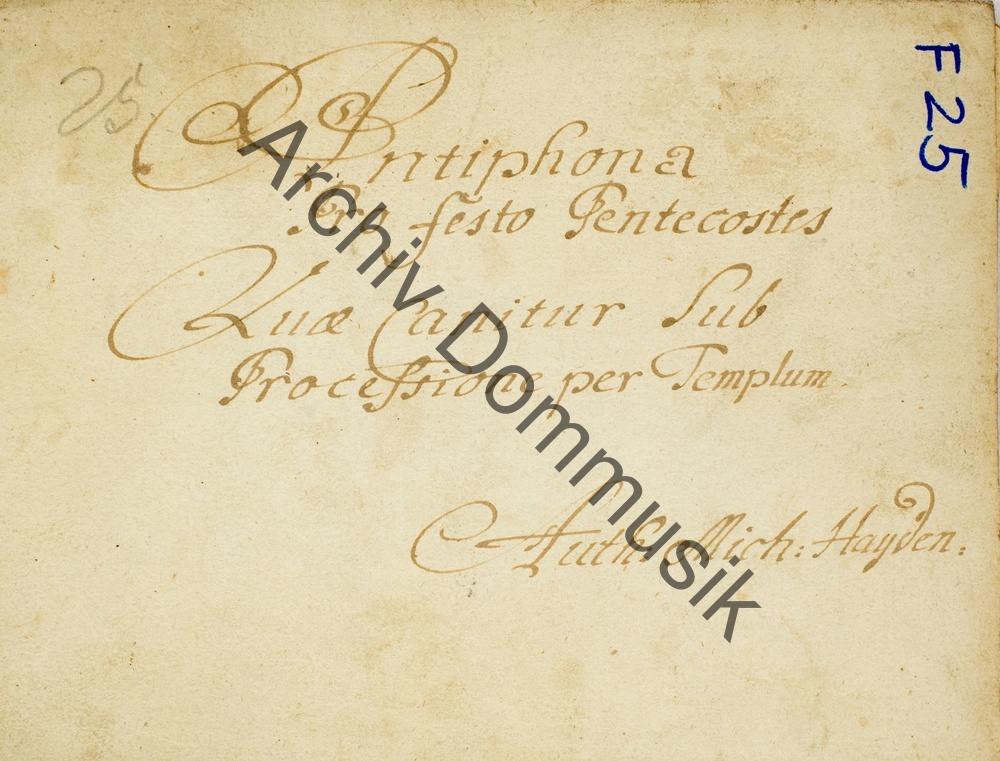 25.
F 25
Antiphona
Pro festo Pentecostes
Quæ Canitur Sub
Processione per Templum.
Auth: Mich: Hayden:
Archiv Dommusik